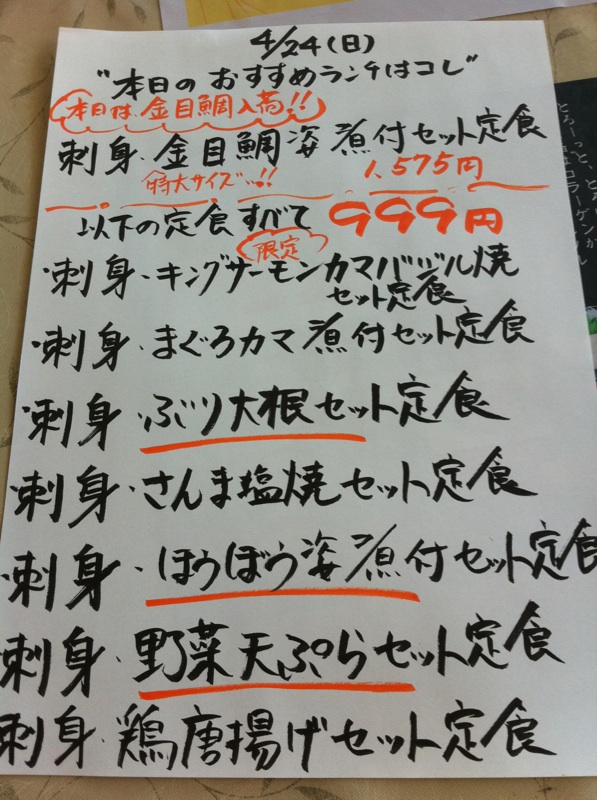 4/24(日)
"本日のおすすめランチはコレ"
本日は金目鯛入荷!!
刺身・金目鯛姿煮付セット定食
特大サイズ…!! 1,575円
以下の定食すべて999円
限定
・刺身・キングサーモンカマバジル焼
セット定食
・刺身・まぐろカマ煮付セット定食
・刺身・ぶり大根セット定食
・刺身・さんま塩焼セット定食
・刺身・ほうぼう姿煮付セット定食
・刺身・野菜天ぷらセット定食
刺身・鶏唐揚げセット定食
とろーっと、とろ
コラーゲンが